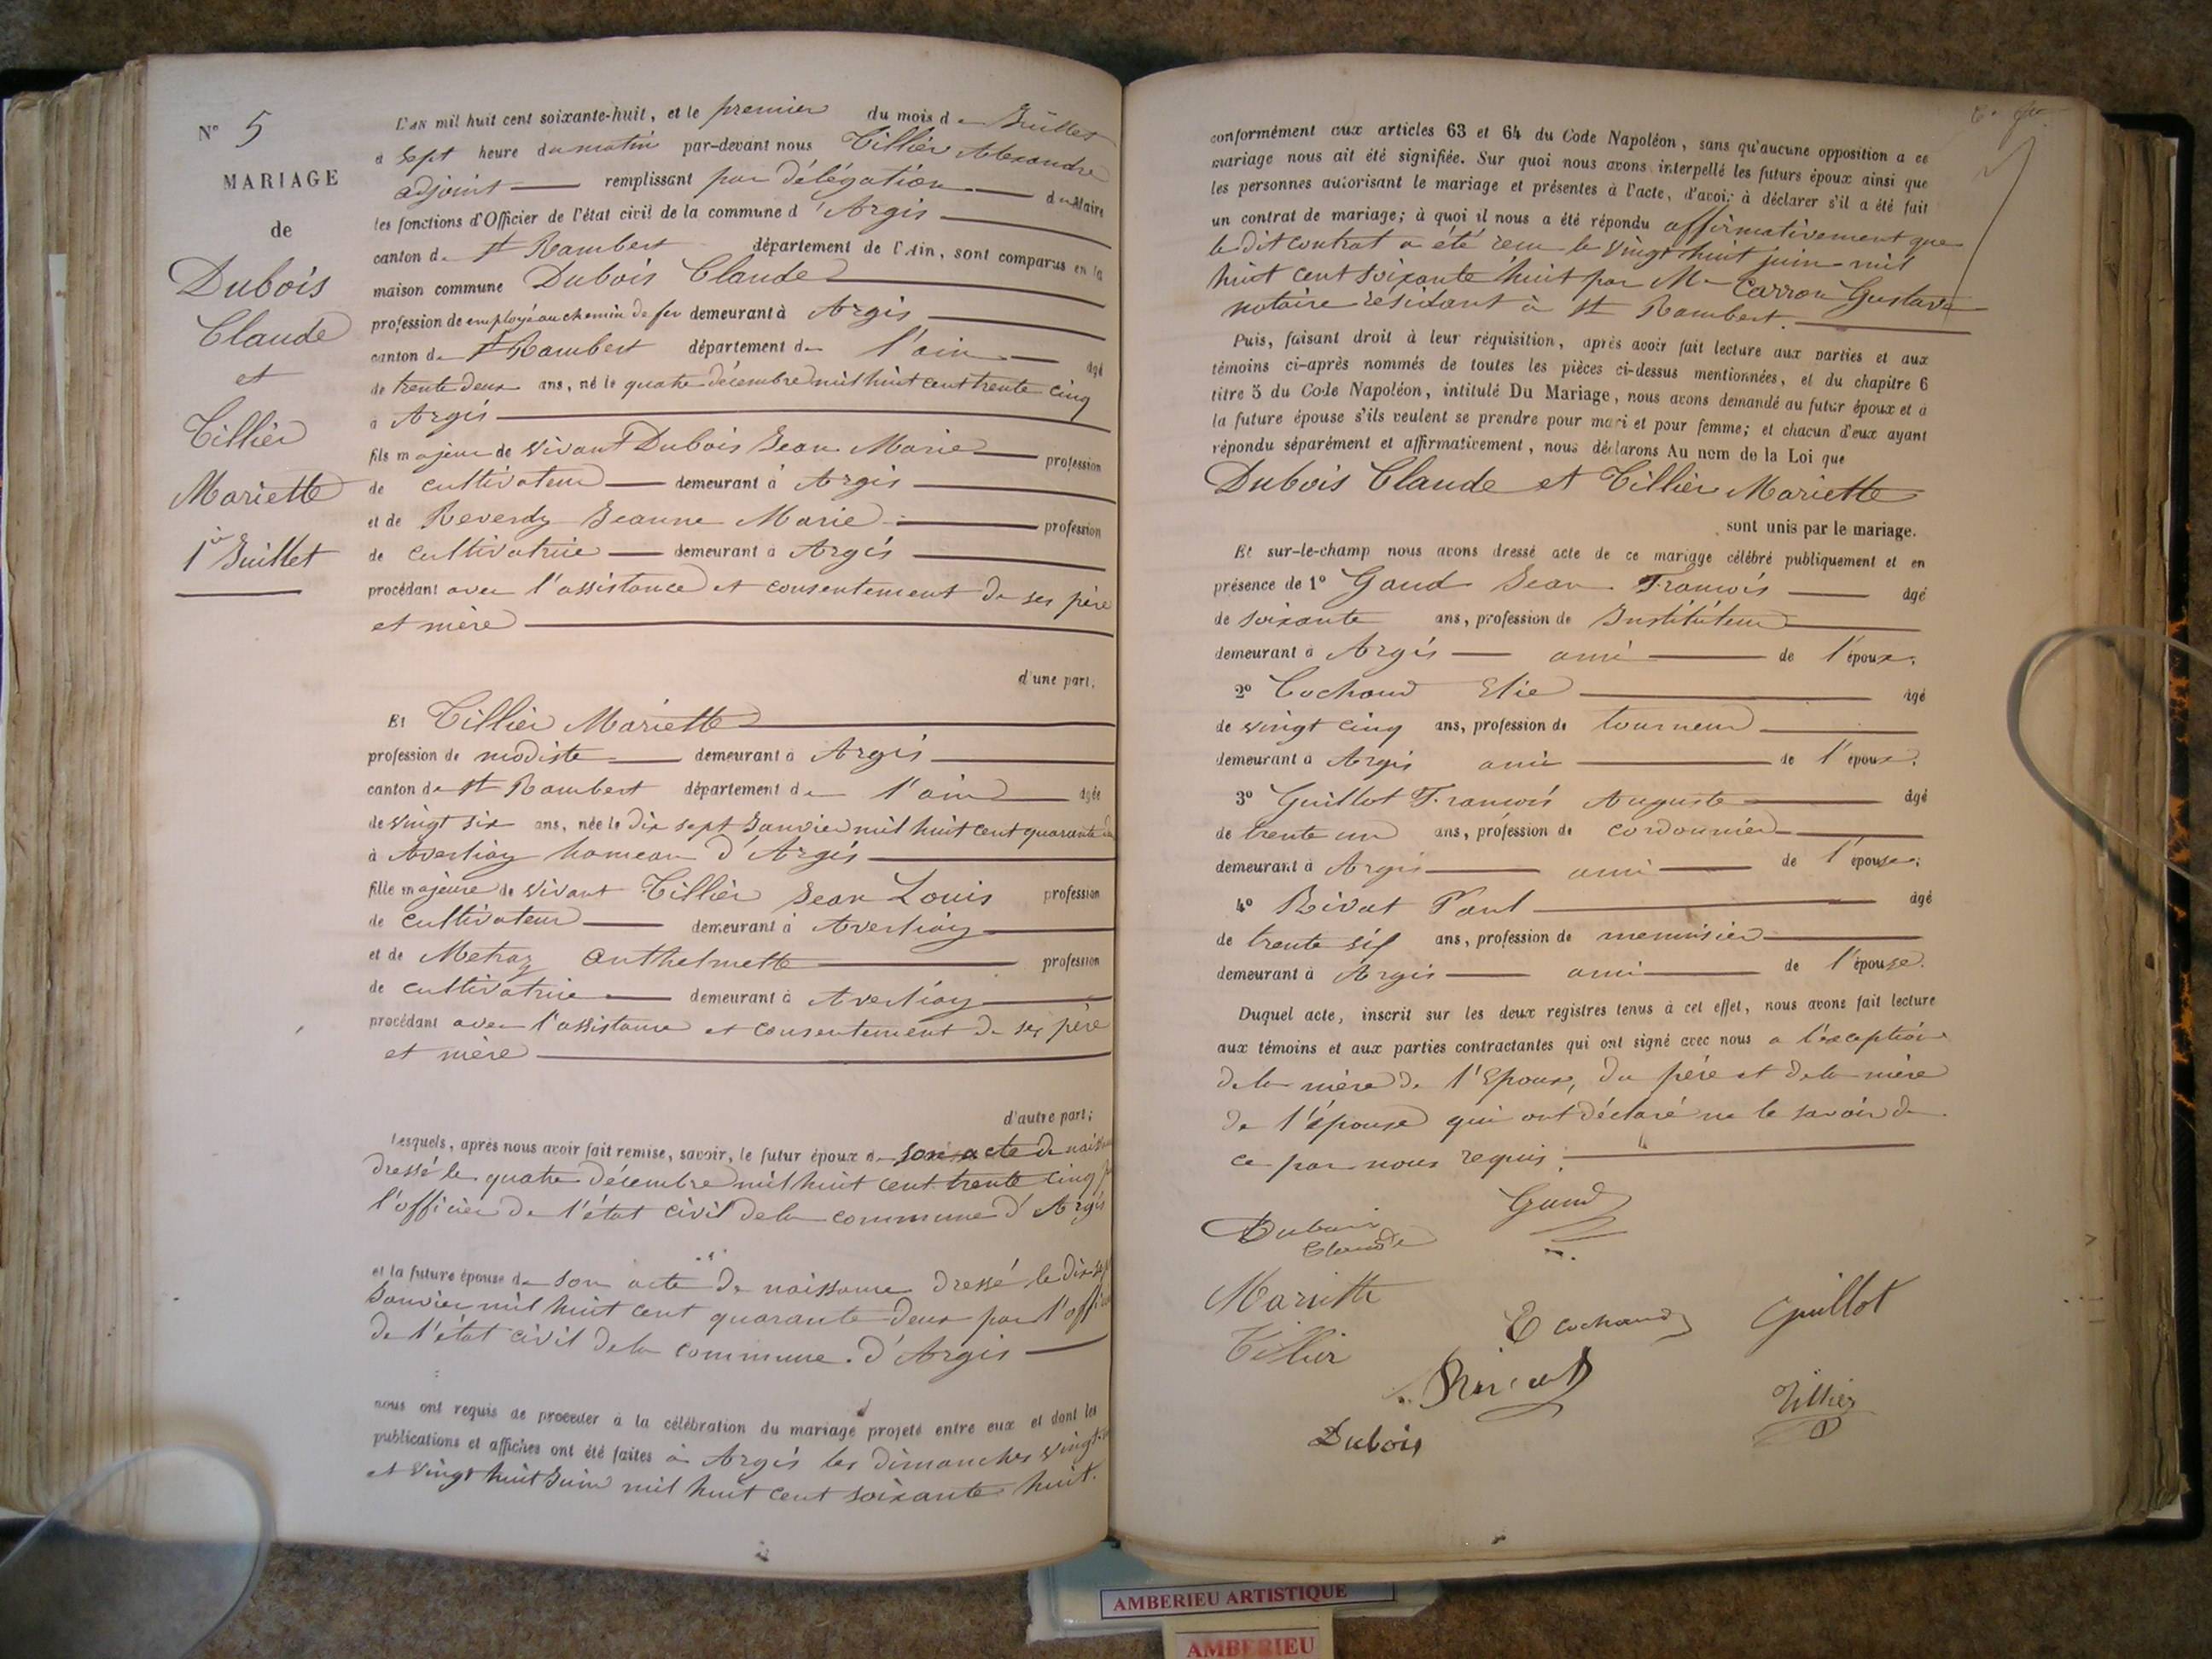 N° 5
MARIAGE
de
Dubois
Claude
et
Tillier
Mariette
1er Juillet
L'an mil huit cent soixante-huit, et le premier du mois de Juillet
à sept heure du matin par-devant nous Tillier Alexandre
adjoint remplissant par délégation du Maire
les fonctions d'Officier de l'état civil de la commune d'Argis
canton de St Rambert département de l'Ain, sont comparus en la
maison commune Dubois Claude
profession de employé au chemin de fer demeurant à Argis
canton de St Rambert département de l'ain âgé
de trente deux ans, né le quatre décembre mil huit cent trente cinq
à Argis
fils majeur de vivant Dubois Jean Marie profession
de cultivateur demeurant à Argis
et de Reverdy Jeanne Marie profession
de cultivatrice demeurant à Argis
procédant avec l'assistance et consentement de ses père
et mère
d'une part,
Et Tillier Mariette
profession de modiste demeurant à Argis
canton de St Rambert département de l'ain âgée
de vingt six ans, née le dix sept Janvier mil huit cent quarante
à Averliaz hameau d'Argis
fille majeure de vivant Tillier Jean Louis profession
de cultivateur demeurant à Averliaz
et de Metraz Anthelmette profession
de cultivatrice demeurant à Averliaz
procédant avec l'assistance et consentement de ses père
et mère
d'autre part;
Lesquels, après nous avoir fait remise, savoir, le futur époux de son acte de
dressé le quatre décembre mil huit cent trente cinq
l'officier de l'état civil de la commune d'Argis
et la future épouse de son acte de naissance dressé le
Janvier mil huit cent quarante deux par
de l'état civil de la commune d'Argis
nous ont requis de procéder à la célébration du mariage projeté entre eux et dont les
publications et affiches ont été faites à Argis les dimanches
et vingt huit Juin mil huit cent soixante huit.
conformément aux articles 63 et 64 du Code Napoléon, sans qu'aucune opposition a ce
mariage nous ait été signifiée. Sur quoi nous avons interpellé les futurs époux ainsi que
les personnes autorisant le mariage et présentes à l'acte, d'avoir à déclarer s'il a été fait
un contrat de mariage; à quoi il nous a été répondu affirmativement que
le dit contrat a été reçu le vingt huit juin mil
huit cent soixante huit par Me Carron Gustave
notaire résidant à St Rambert.
Puis, faisant droit à leur réquisition, après avoir fait lecture aux parties et aux
témoins ci-après nommés de toutes les pièces ci-dessus mentionnées, et du chapitre 6
titre 5 du Code Napoléon, intitulé Du Mariage, nous avons demandé au futur époux et à
la future épouse s'ils veulent se prendre pour mari et pour femme; et chacun d'eux ayant
répondu séparément et affirmativement, nous déclarons Au nom de la Loi que
Dubois Claude et Tillier Mariette
sont unis par le mariage.
Et sur-le-champ nous avons dressé acte de ce mariage célébré publiquement et en
présence de 1° Gaud Jean François âgé
de soixante ans, profession de Instituteur
demeurant à Argis ami de l'époux,
2° Cochaud Elie âgé
de vingt cinq ans, profession de tourneur
demeurant à Argis ami de l'époux,
3° Guillot François Auguste âgé
de trente un ans, profession de cordonnier
demeurant à Argis ami de l'épouse,
4° Rivat Paul âgé
de trente six ans, profession de menuisier
demeurant à Argis ami de l'épouse.
Duquel acte, inscrit sur les deux registres tenus à cet effet, nous avons fait lecture
aux témoins et aux parties contractantes qui ont signé avec nous a l'exception
de la mère de l'Epoux, du père et de la mère
de l'épouse qui ont déclaré ne le savoir de
ce par nous requis.
Dubois
Claude
Gaud
Mariette
Tillier
E Cochaud
Guillot
Rivat
Tillier
Dubois
AMBERIEU ARTISTIQUE
AMBERIEU